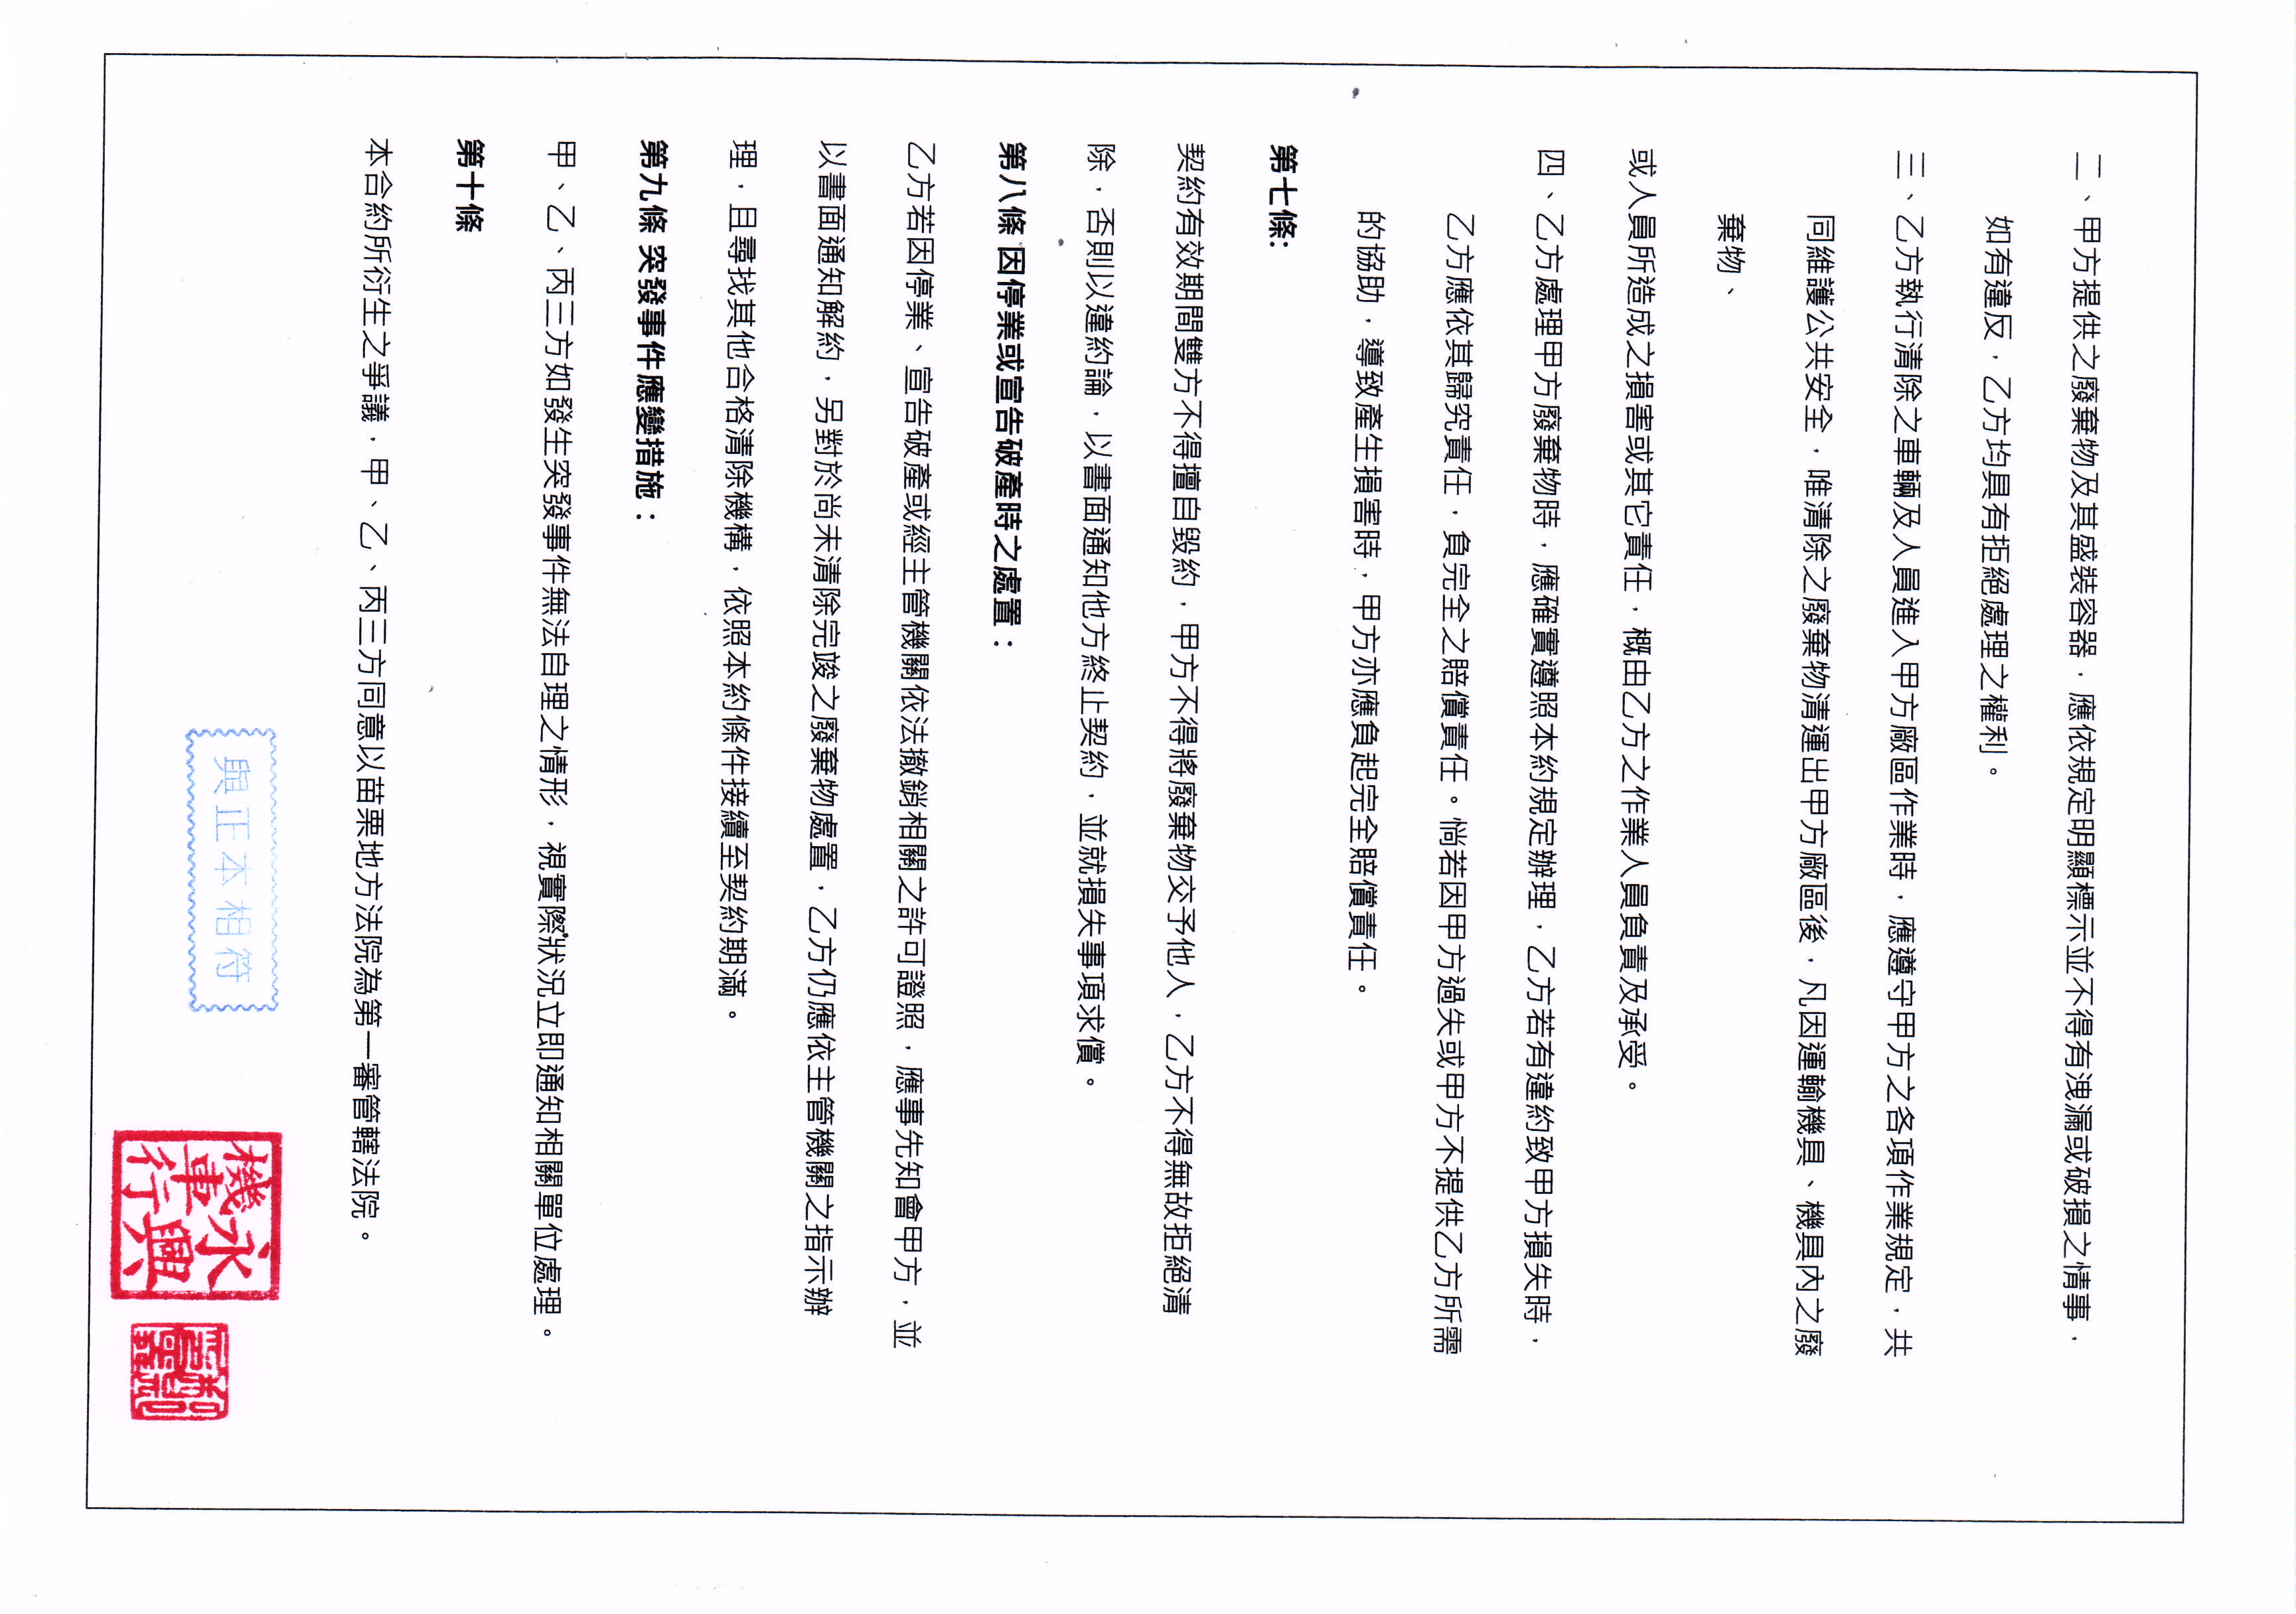 二、甲方提供之廢棄物及其盛裝容器，應依規定明顯標示並不得有洩漏或破損之情事，
如有違反，乙方均具有拒絕處理之權利。
三、乙方執行清除之車輛及人員進入甲方廠區作業時，應遵守甲方之各項作業規定，共
同維護公共安全，唯清除之廢棄物清運出甲方廠區後，凡因運輸機具、機具內之廢
棄物、
或人員所造成之損害或其它責任，概由乙方之作業人員負責及承受。
四、乙方處理甲方廢棄物時，應確實遵照本約規定辦理，乙方若有違約致甲方損失時，
乙方應依其歸究責任，負完全之賠償責任。惝若因甲方過失或甲方不提供乙方所需
的協助，導致產生損害時，甲方亦應負起完全賠償責任。
第七條:
契約有效期間雙方不得擅自毀約，甲方不得將廢棄物交予他人，乙方不得無故拒絕清
除，否則以違約論，以書面通知他方終止契約，並就損失事項求償。
第八條 因停業或宣告破產時之處置：
乙方若因停業、宣告破產或經主管機關依法撤銷相關之許可證照，應事先知會甲方，並
以書面通知解約，另對於尚未清除完竣之廢棄物處置，乙方仍應依主管機關之指示辦
理，且尋找其他合格清除機構，依照本約條件接續至契約期滿。
第九條 突發事件應變措施：
甲、乙、丙三方如發生突發事件無法自理之情形，視實際狀況立即通知相關單位處理。
第十條
本合約所衍生之爭議，甲、乙、丙三方同意以苗栗地方法院為第一審管轄法院。
與正本相符
永興
機車行